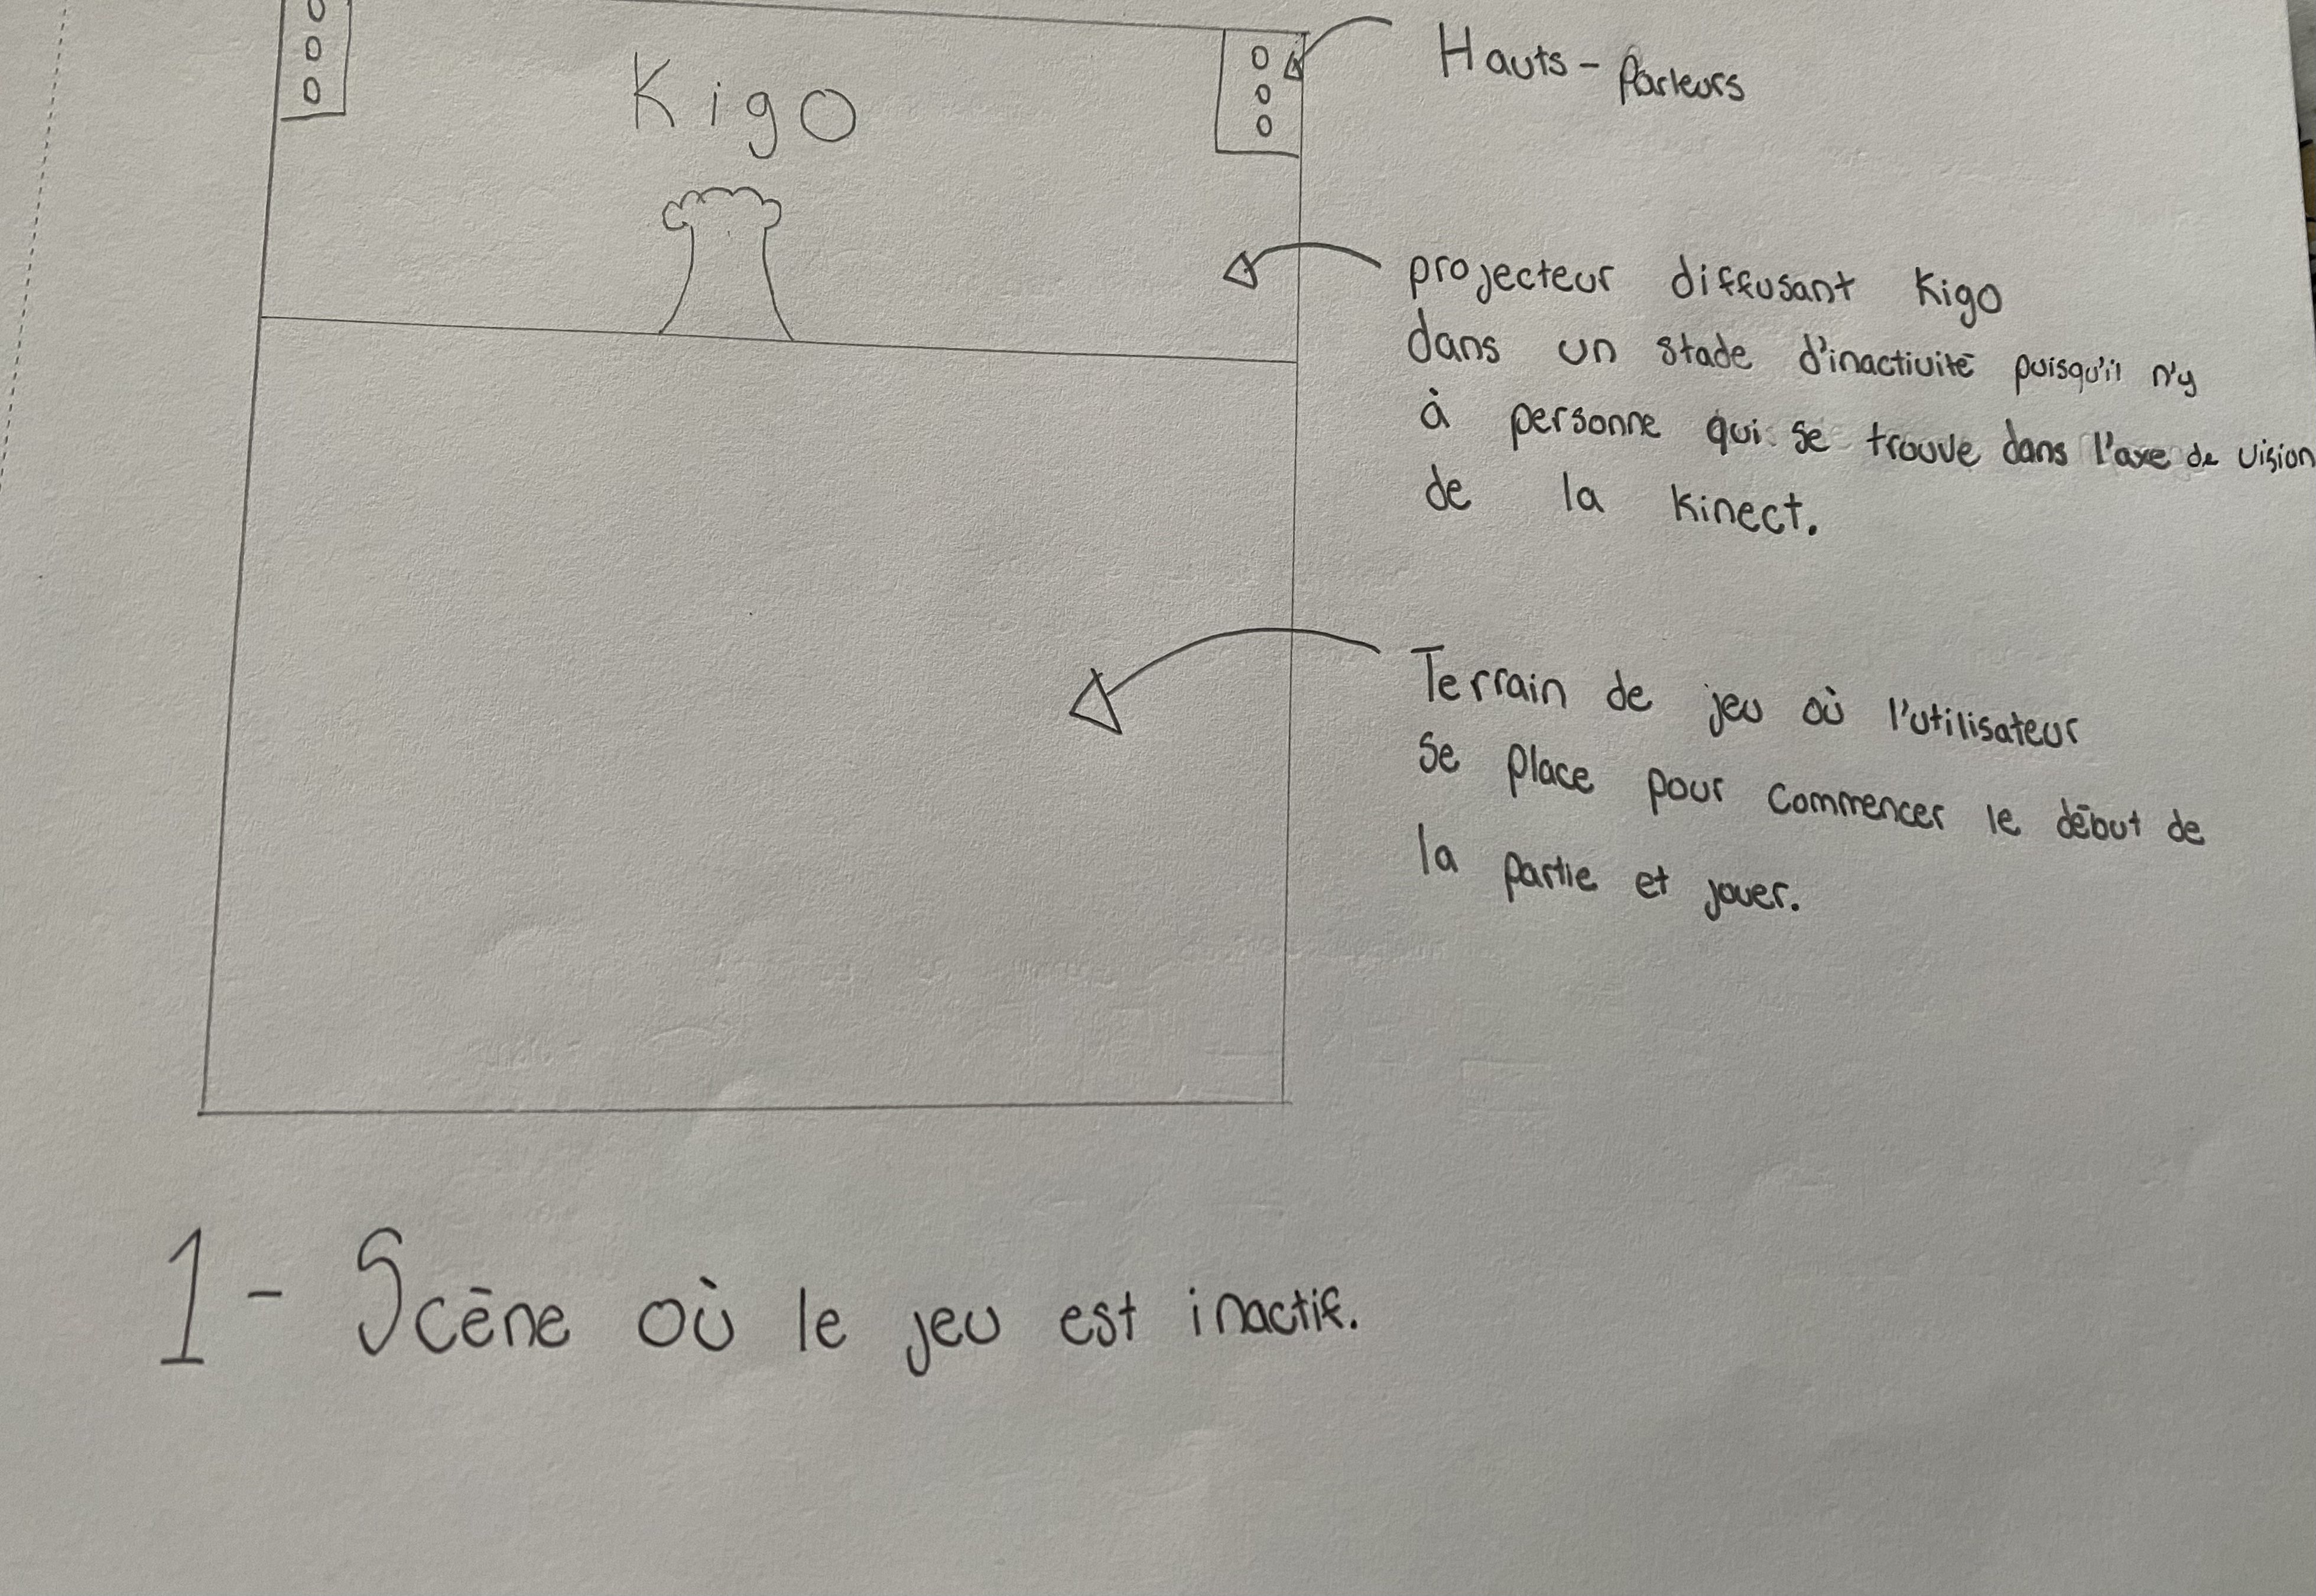 Kigo
Hauts-Parleurs
projecteur diffusant Kigo
dans un stade d'inactivité puisqu'il n'y
à personne qui se trouve dans l'axe de vision
de la Kinect.
Terrain de jeu où l'utilisateur
se place pour commencer le début de
la partie et jouer.
1- Scène où le jeu est inactif.